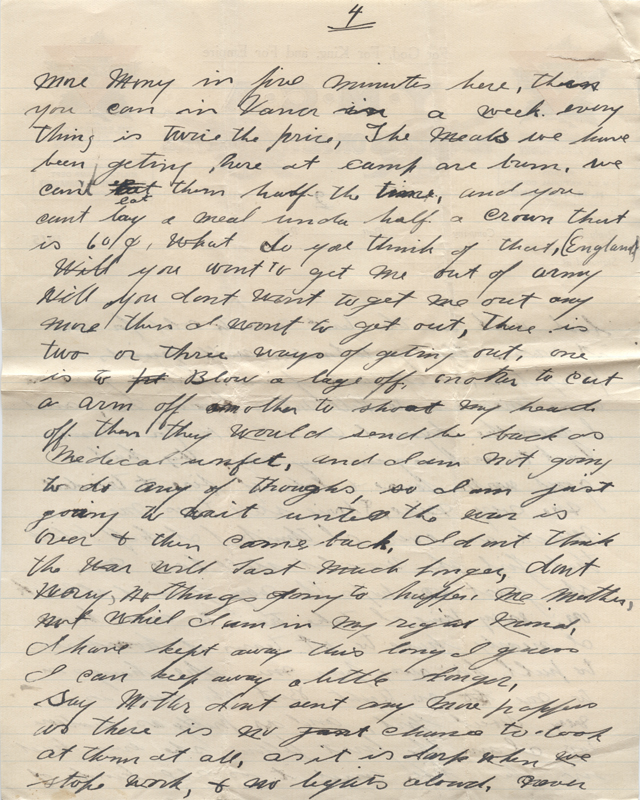 4
more Mony in five minutes here, then
you can in Vancr in a week. every
thing is twice the price, The meals we have
been geting here at camp are bum. we
cant eat them half the time, and you
cant bay a meal unda half a crown that
is 60¢, What do you think of that, (England)
Will you want to get me out of army
Will you dont want to get me out any
more then I want to get out, There is
two or three ways of geting out, one
is to Blow a lage off, another to cut
a arm off another to shoot my head
off then they would send be back as
Medical unfit, and I am not going
to do any of thoughs, so I am just
going to wait until the war is
over & then come back, I dont think
the war will last much longer, dont
worry, no things going to happen me mother,
not whiel I am in my right mind,
I have kept away this long I guess
I can keep away a little longer,
Say Mother dont sent any more pappers
as there is no chance to look
at them at all, as it is darp when we
stope work, & no lights aloud, never